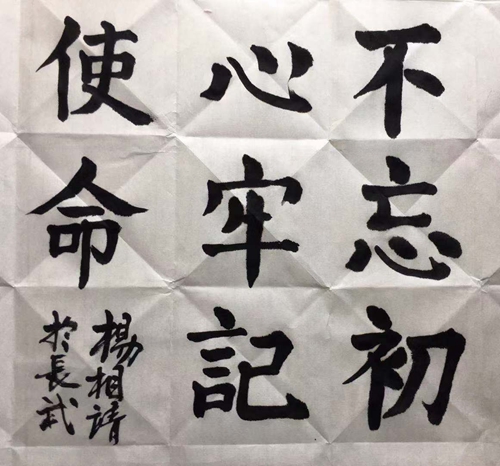 不忘初
心牢記
使命
楊相請
於長武